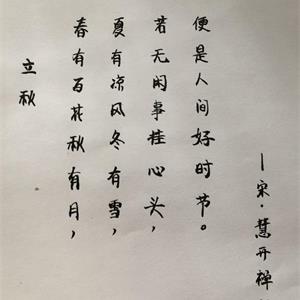 立秋
春有百花秋有月，
夏有凉风冬有雪，
若无闲事挂心头，
便是人间好时节。
—宋·慧开禅